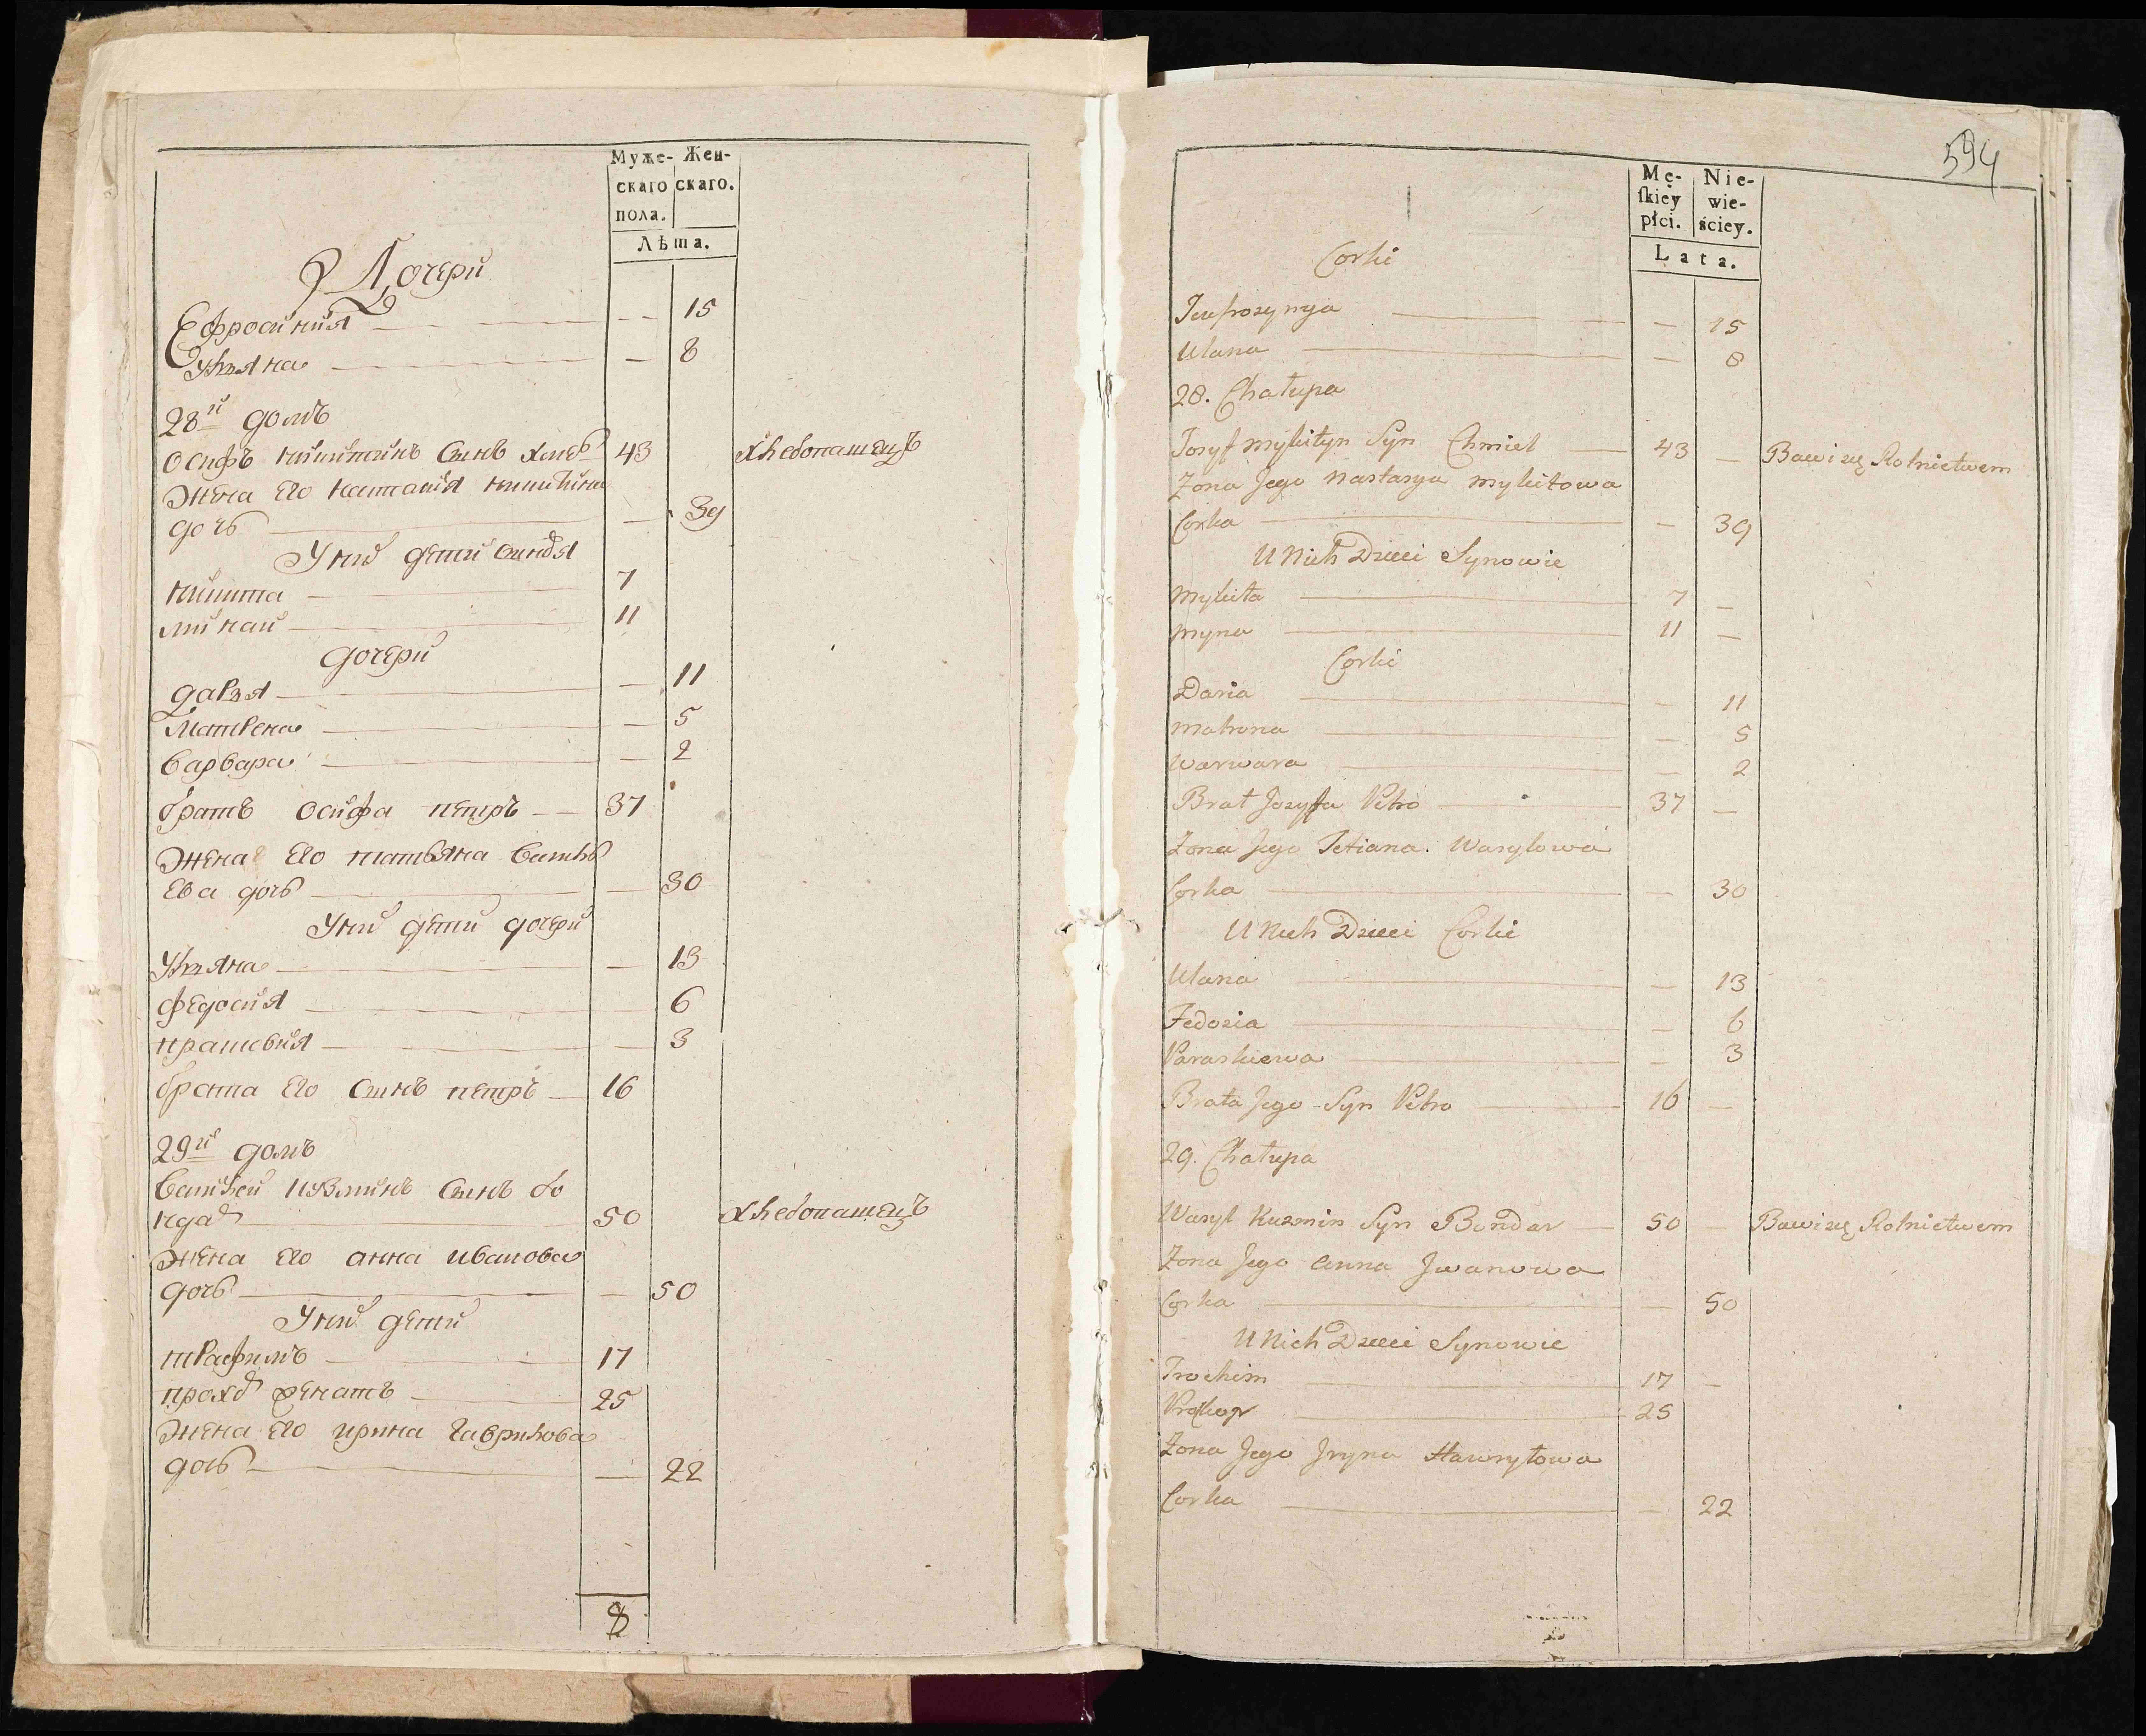 Муже-
скаго
пола.
Жен-
скаго.
Лѣта.
Дочери
Ефросиния — — 15
Ульяна — — 8
28й домъ
осифъ никитинъ сынъ хмел 43 хлебопашецъ
жена его настасия никитина
дочь — — 39
У них дети сыновья
никита — 7
минай — 11
дочери
дарья — — 11
Матрена — — 5
варвара — — 2
братъ осифа петръ — 37
жена его татьяна василь
ева дочь — — 30
У них дети дочери
Ульяна — — 13
федосия — 6
прасковия — — 3
брата его сынъ петръ — 16
29й домъ
василей кузминъ сынъ бо
ндар — 50 хлебопашецъ
жена его анна иванова
дочь — — 50
У них дети
трафимъ — 17
прокоп женатъ — 25
жена его ирина гаврилова
дочь — — 22
8
594
Mę-
ſkiey
płci.
Nie-
wie-
ściey.
Lata.
Corki
Jeufrozynya — — 15
Ulana — — 8
28. Chałupa
Josyf Mykityn Syn Chmiel — 43 — Bawi się Rolnictwem
Zona Jego Nastasya Mykitowa
Corka — — 39
U Nich Dzieci Synowie
Mykita — 7 —
Myna — 11 —
Corki
Daria — — 11
Matrona — — 5
Warwara — — 2
Brat Jozyfa Petro — 37 —
Zona Jego Tetiana Wasylowa
Corka — — 30
U Nich Dzieci Corki
Ulana — — 13
Fedosia — — 6
Paraskiewa — — 3
Brata Jego Syn Petro — 16 —
29. Chałupa
Wasyl Kuzmin Syn Bondar — 50 — Bawi się Rolnictwem
Zona Jego Anna Jwanowa
Corka — — 50
U Nich Dzieci Synowie
Trochim — 17 —
Prokop — 25
Zona Jego Jryna Hawryłowa
Corka — — 22